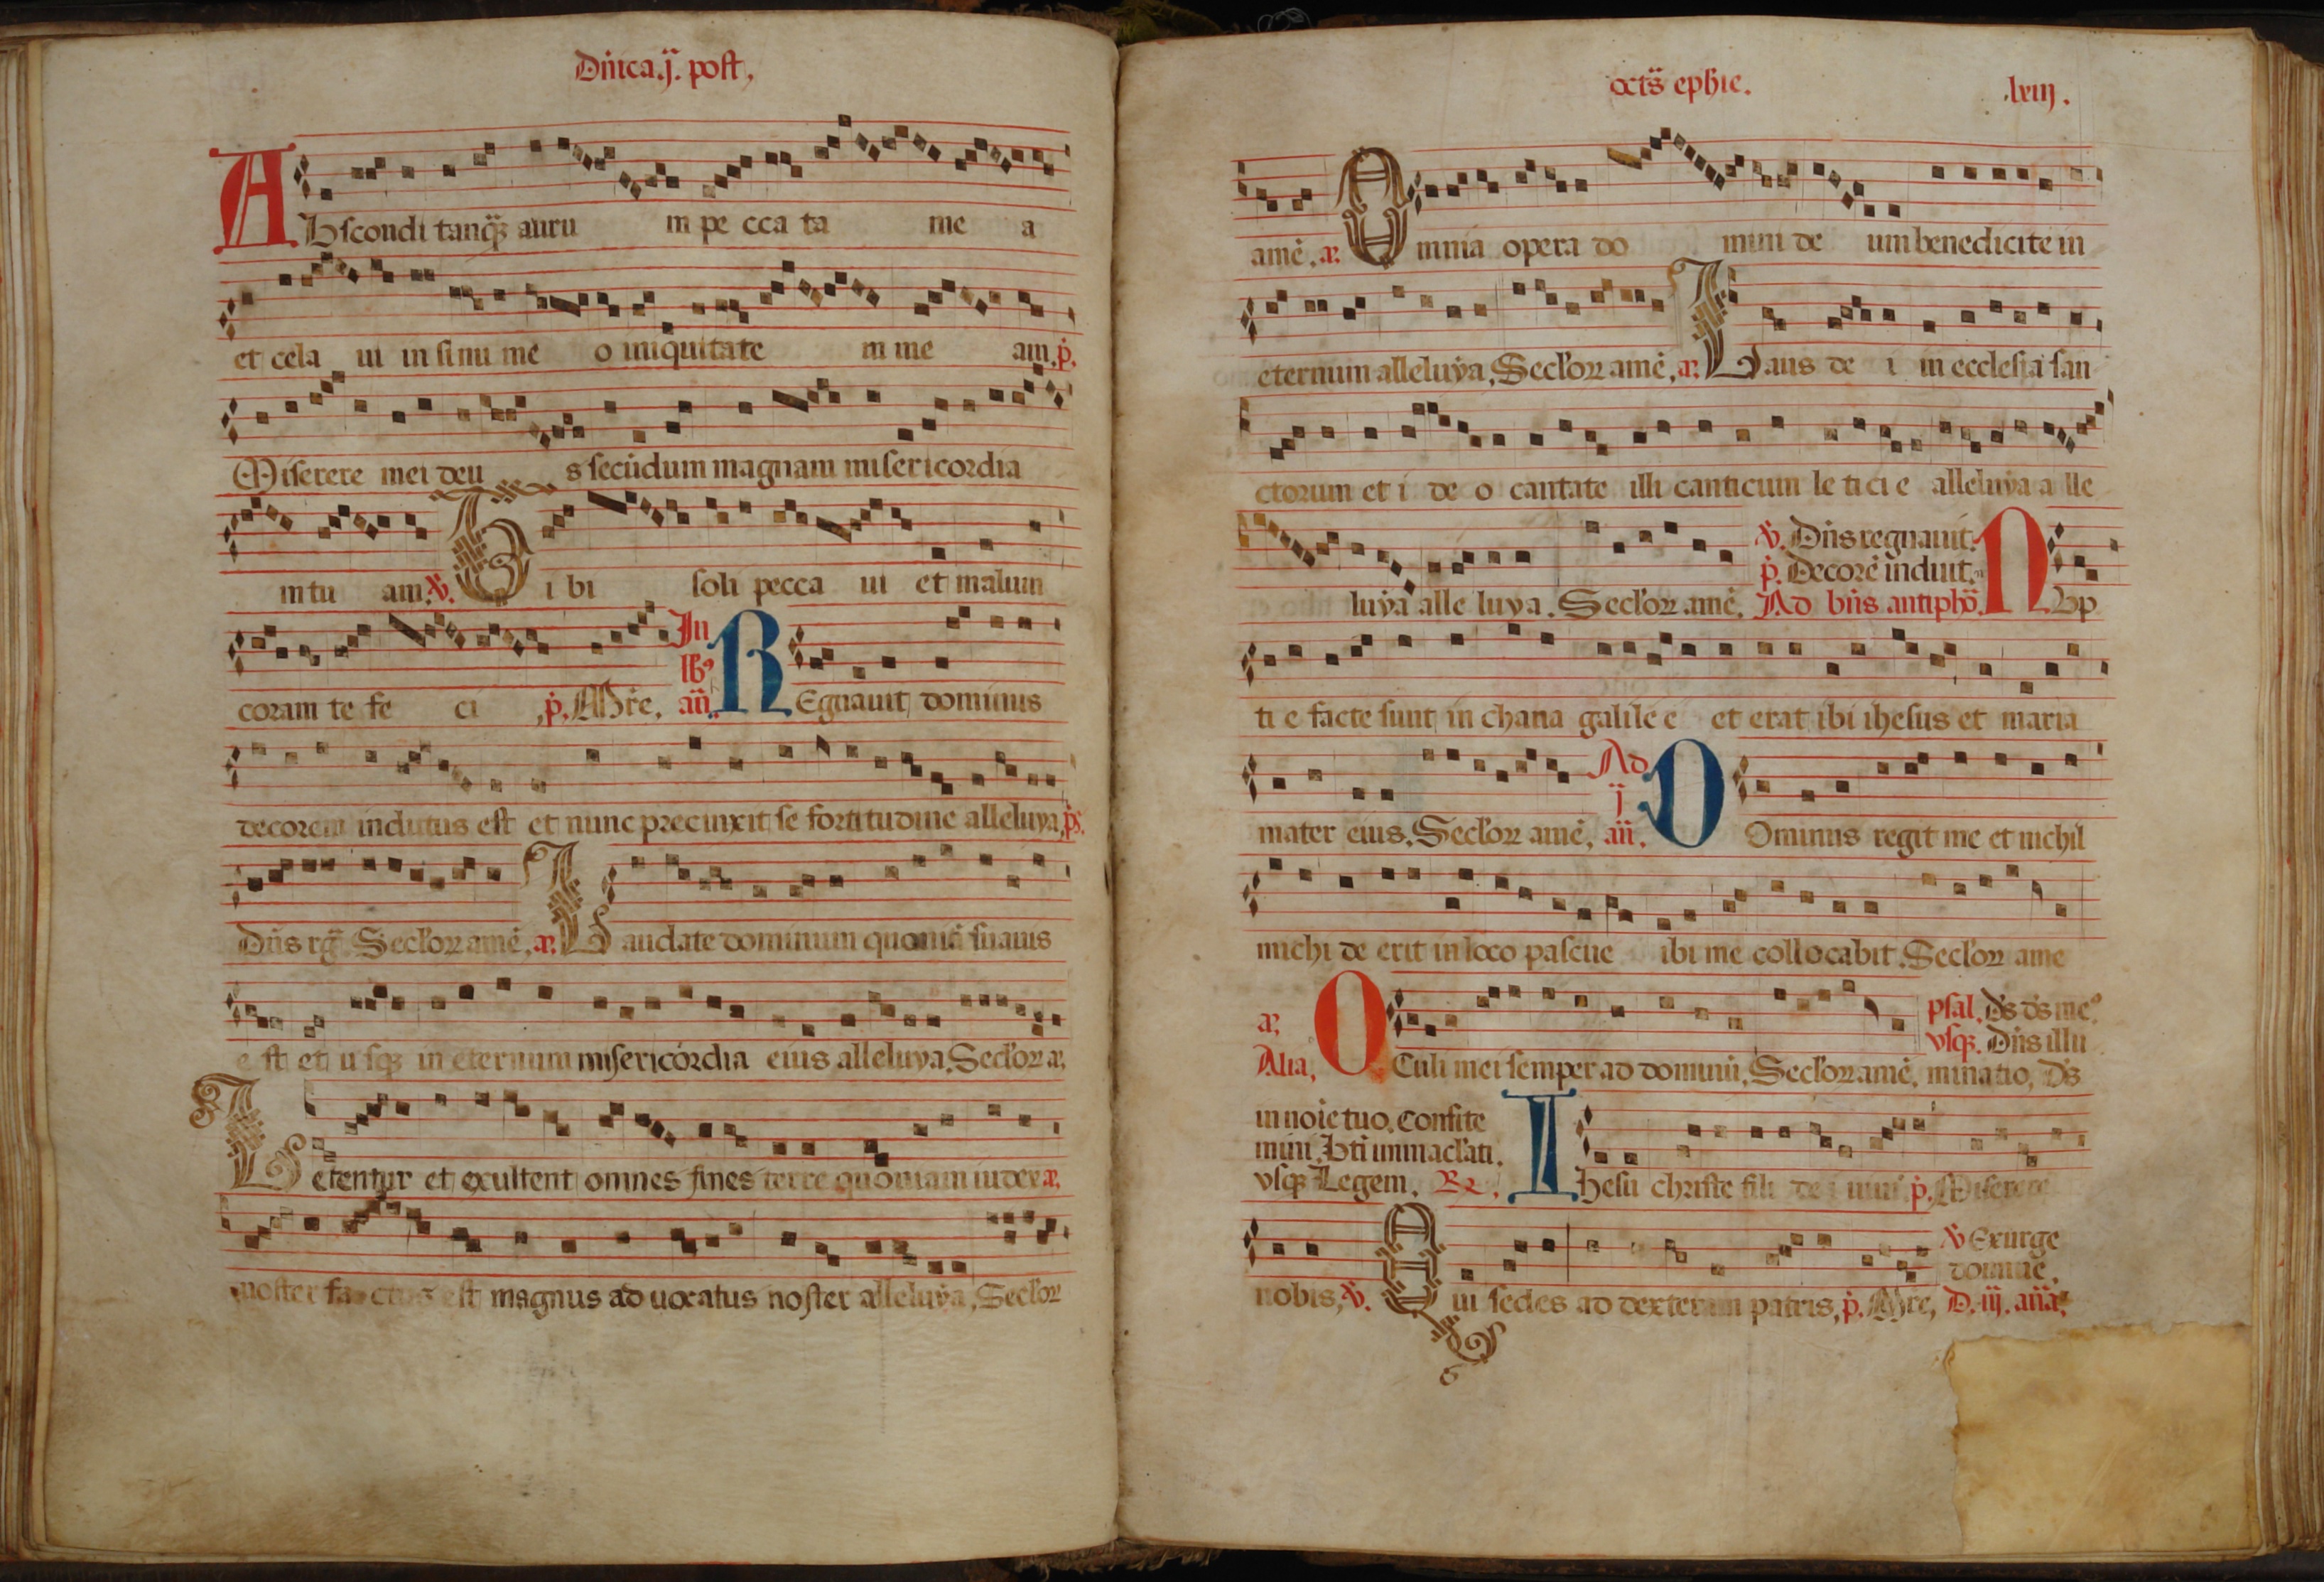 Dn̄ica.j. post,
Abscondi tanq̄ȝ auru m pe cca ta me a
et cela ui in sinu me o iniquitate m me am, p̄.
Miserere mei deu s secūdum magnam misericordia
m tu am. v̄. Tibi soli pecca ui et malum
coram te fe ci, p̄. Mr̄e. In lb̾ an̄. Regnauit dominus
decorem indutus est et nunc precinxit se fortitudine alleluya, p̄s.
Dn̄s rḡ. Secl'oꝝ amē. æ. Laudate dominum quoniā suauis
e st et usqȝ in eternum misericordia eius alleluya. Secl'oꝝ æ.
Letentur et exultent omnes fines terre quoniam iudex æ.
noster factus est magnus aduocatus noster alleluya, Secl'oꝝ
octs̄ ephie. .lxiij.
amē. æ. Omnia opera do mini de um benedicite in
eternum alleluya, Secl'oꝝ amē, æ. Laus de i in ecclesia san
ctorum et i de o cantate illi canticum le ti ci e alleluya a lle
v̄. Dn̄s regnauit.
p̄. Decorē induit.
luya alle luya. Secl'oꝝ amē. Ad bn̄s antiphō. Nup
ti e facte sunt in chana galile e et erat ibi ihesus et maria
mater eius. Secl'oꝝ amē, Ad j̄ an̄. Dominus regit me et nichil
michi de erit in loco pascue ibi me collocabit. Secl'oꝝ ame
psal. Ds̄ ds̄ me᾽.
æ. vsqȝ. Dn̄s illu
Alia, Oculi mei semper ad dominū, Secl'oꝝ amē, minatio, Ds̄
in noīe tuo. Confite
mini. Bti immacl'ati.
vsqȝ Legem. R̄. Ihesu christe fili de i uiui p̄. Miserere
v̄ Exurge
domine,
nobis, v̄. Qui sedes ad dexteram patris, p̄. Mr̄e, D. iij. an̄a.